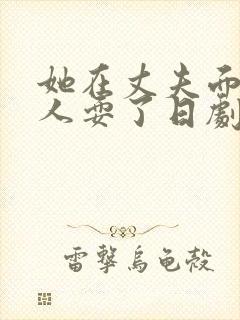 她在丈夫
人耍了日劇
雷擊烏龜殼